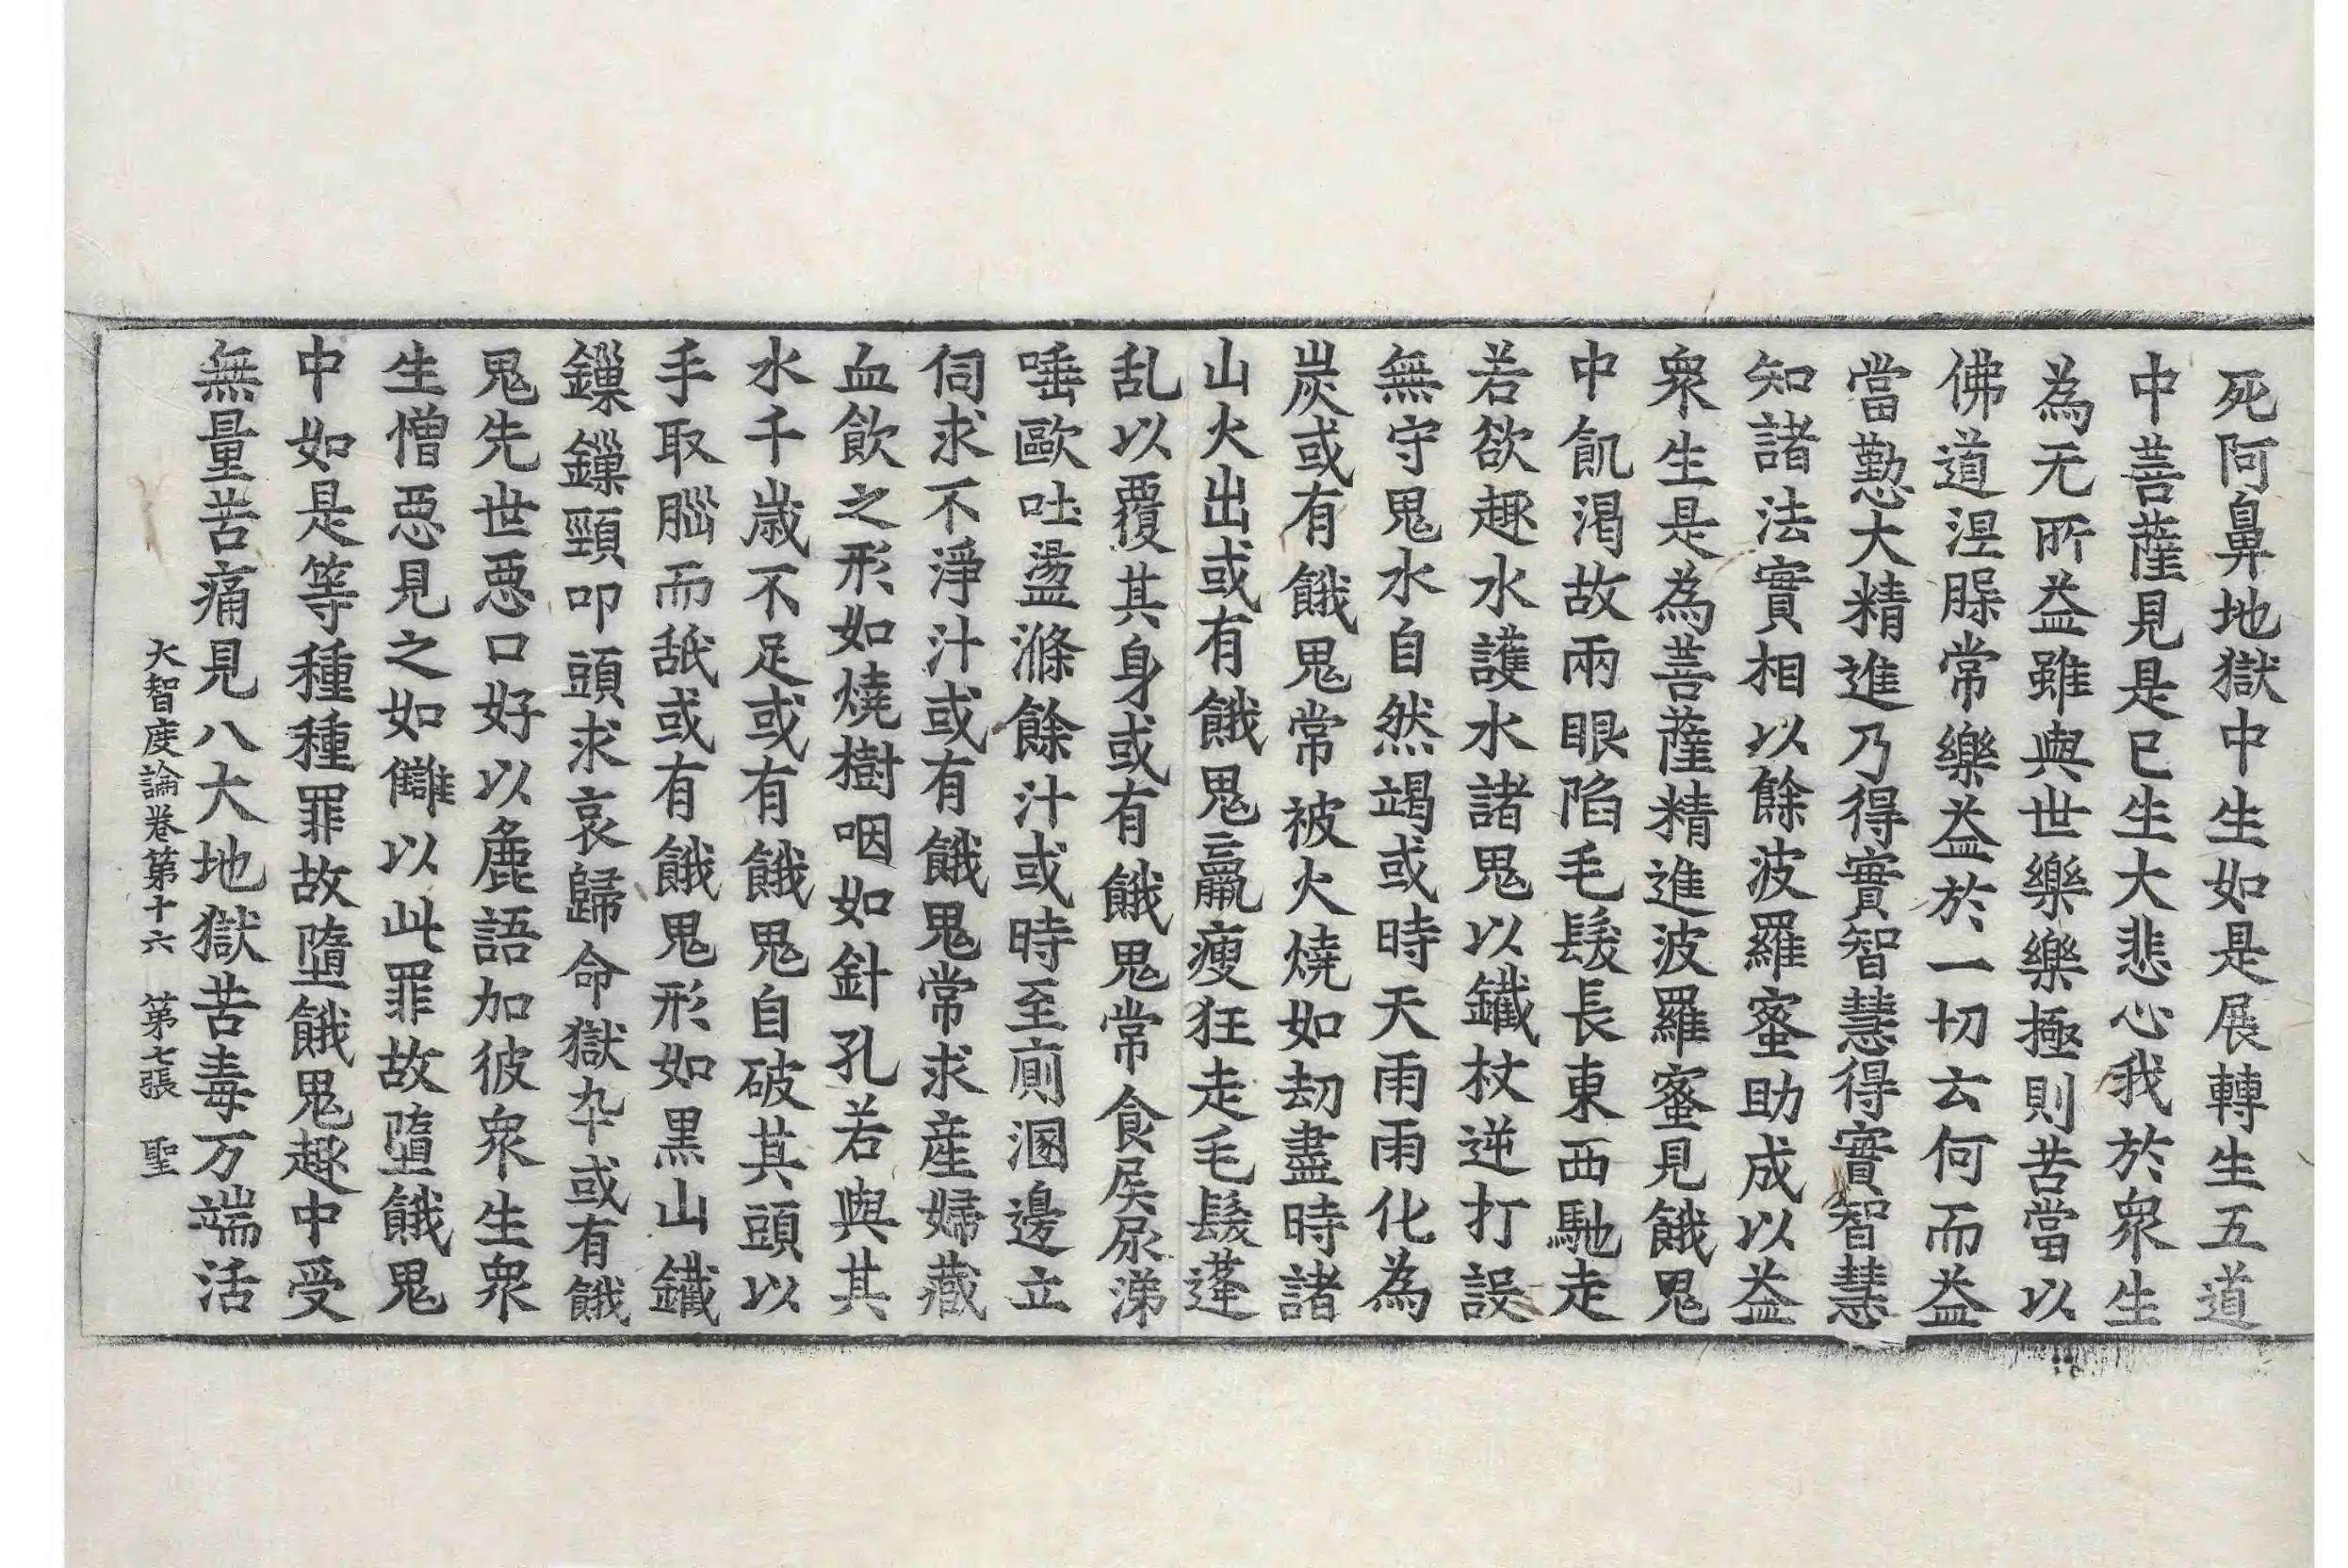 死阿鼻地獄中生如是展轉生五道
中菩薩見是已生大悲心我於衆生
為无所益雖與世樂樂極則苦當以
佛道涅槃常樂益於一切云何而益
當懃大精進乃得實智慧得實智慧
知諸法實相以餘波羅蜜助成以益
衆生是為菩薩精進波羅蜜見餓鬼
中飢渴故兩眼陷毛髮長東西馳走
若欲趣水護水諸鬼以鐵杖逆打設
無守鬼水自然竭或時天雨雨化為
炭或有餓鬼常被火燒如劫盡時諸
山火出或有餓鬼羸瘦狂走毛髮蓬
乱以覆其身或有餓鬼常食屎尿涕
唾歐吐盪滌餘汁或時至廁溷邊立
伺求不淨汁或有餓鬼常求産婦藏
血飲之形如燒樹咽如針孔若與其
水千歲不足或有餓鬼自破其頭以
手取腦而舐或有餓鬼形如黑山鐵
鏁鏁頸叩頭求哀歸命獄卒或有餓
鬼先世惡口好以麁語加彼衆生衆
生憎惡見之如讎以此罪故墮餓鬼
中如是等種種罪故墮餓鬼趣中受
無量苦痛見八大地獄苦毒万端活
大智度論卷第十六 第七張 聖